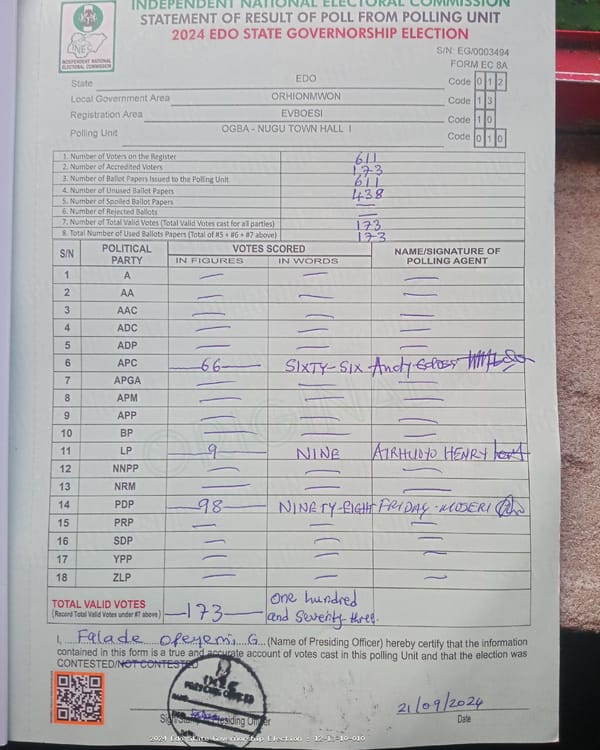 INDEPENDENT NATIONAL ELECTORAL COMMISSION
STATEMENT OF RESULT OF POLL FROM POLLING UNIT
2024 EDO STATE GOVERNORSHIP ELECTION
INEC
INDEPENDENT NATIONAL
ELECTORAL COMMISSION
S/N: EG/0003494
FORM EC 8A
State EDO Code 0 1 2
Local Government Area ORHIONMWON Code 1 3
Registration Area EVBOESI Code 1 0
Polling Unit OGBA - NUGU TOWN HALL I Code 0 1 0
1. Number of Voters on the Register 611
2. Number of Accredited Voters 173
3. Number of Ballot Papers Issued to the Polling Unit 611
4. Number of Unused Ballot Papers 438
5. Number of Spoiled Ballot Papers —
6. Number of Rejected Ballots —
7. Number of Total Valid Votes (Total Valid Votes cast for all parties) 173
8. Total Number of Used Ballots Papers (Total of #5 + #6 + #7 above) 173
S/N POLITICAL PARTY VOTES SCORED NAME/SIGNATURE OF POLLING AGENT
IN FIGURES IN WORDS
1 A — — —
2 AA — — —
3 AAC — — —
4 ADC — — —
5 ADP — — —
6 APC —66— SIXTY-SIX Andy
7 APGA — — —
8 APM — — —
9 APP — — —
10 BP — — —
11 LP —9— NINE HENRY
12 NNPP — — —
13 NRM — — —
14 PDP —98— NINETY-EIGHT FRIDAY - MOSERI
15 PRP — — —
16 SDP — — —
17 YPP — — —
18 ZLP — — —
TOTAL VALID VOTES —173— One hundred
(Record Total Valid Votes under #7 above) and Seventy-three
I, Falade Opeyemi G (Name of Presiding Officer) hereby certify that the information
contained in this form is a true and accurate account of votes cast in this polling Unit and that the election was
CONTESTED/NOT CONTESTED
INEC
PRESIDING OFFICER
21/09/2024
Sign/Stamp of Presiding Officer Date
2024 Edo State Governorship Election : 12-13-10-010